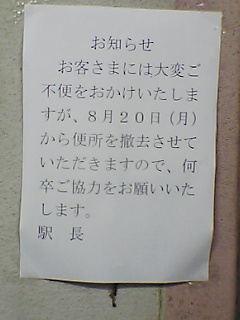 お知らせ
お客さまには大変ご
不便をおかけいたしま
すが、８月２０日（月）
から便所を撤去させて
いただきますので、何
卒ご協力をお願いいた
します。
駅　長